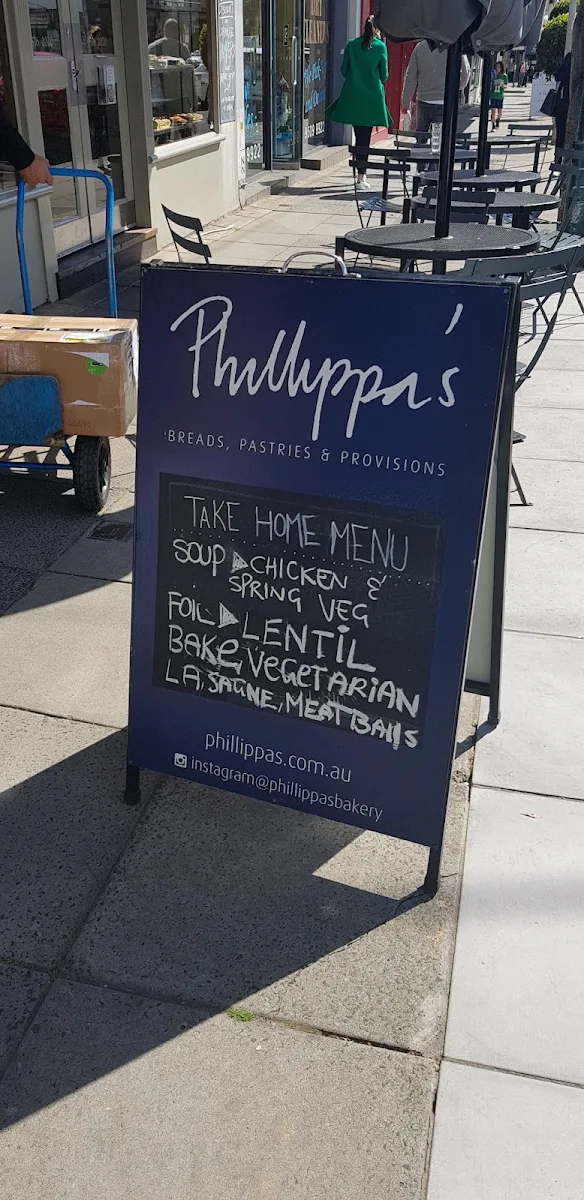 Phillippa's
BREADS, PASTRIES & PROVISIONS
TAKE HOME MENU
SOUP ▶ CHICKEN &
SPRING VEG
FOIL ▶ LENTIL
BAKE VEGETARIAN
LA,SAGNE, MEATBALLS
phillippas.com.au
instagram@phillippasbakery